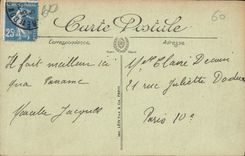 60
60
25c
Carte Postale
Correspondance
Adresse
Il fait meilleur ici
qu'a Paname
Jacques
Mlle Claire Decain
21 rue Juliette Dodu
Paris 10e